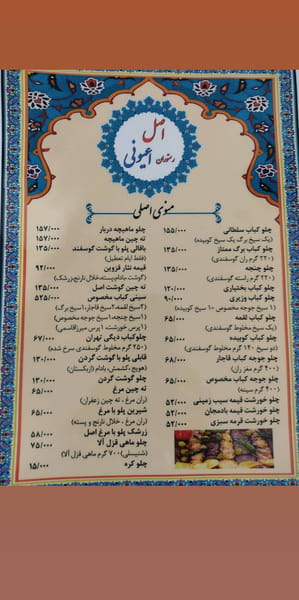 اصل
رستوران اعیونی
منوی اصلی
چلو کباب سلطانی ۱۵۵/۰۰۰
(یک سیخ برگ یک سیخ کوبیده)
چلو کباب برگ ممتاز ۱۳۵/۰۰۰
(۲۲۰ گرم ران گوسفندی)
چلو چنجه ۱۳۵/۰۰۰
(۲۲۰ گرم راسته گوسفندی)
چلو کباب بختیاری ۱۲۰/۰۰۰
چلو کباب وزیری ۹۰/۰۰۰
(۱ سیخ جوجه مخصوص ۱۰ سیخ کوبیده)
چلو کباب لقمه ۶۵/۰۰۰
(یک سیخ مخلوط گوسفندی)
چلو کباب کوبیده ۶۵/۰۰۰
(دو سیخ ۱۴۰ گرم مخلوط گوسفندی)
چلو جوجه کباب قاجار ۶۸/۰۰۰
(۴۰۰ گرم مغز ران)
چلو جوجه کباب مخصوص ۶۵/۰۰۰
(۴۰۰ گرم سینه)
چلو خورشت قیمه سیب زمینی ۵۲/۰۰۰
چلو خورشت قیمه بادمجان ۵۲/۰۰۰
چلو خورشت قرمه سبزی ۵۲/۰۰۰
چلو ماهیچه دربار ۱۵۷/۰۰۰
ته چین ماهیچه ۱۵۷/۰۰۰
باقالی پلو با گوشت گوسفند ۱۳۵/۰۰۰
(فقط ایام تعطیل)
قیمه نثار قزوین ۹۲/۰۰۰
(گوشت، بادام، پسته، خلال نارنج، زرشک)
ته چین گوشت اصل ۱۳۵/۰۰۰
سینی کباب مخصوص ۵۲۵/۰۰۰
(۴سیخ لقمه، ۲سیخ قاجار، ۱سیخ برگ)
(۱ سیخ چنجه، ۱سیخ جوجه مخصوص)
(۱ پرس خورشت، ۱ پرس میرزاقاسمی)
چلوکباب دیگی تهران ۶۷/۰۰۰
(۲۵۰ گرم مخلوط گوسفندی سرخ شده)
قابلی پلو با گوشت گردن ۱۳۰/۰۰۰
(هویج، کشمش، بادام ازبکستان)
چلو گوشت گردن ۱۳۰/۰۰۰
ته چین مرغ ۶۵/۰۰۰
(ران مرغ، ته چین زعفران)
شیرین پلو با مرغ ۶۵/۰۰۰
(ران مرغ، خلال نارنج و پسته)
زرشک پلو با مرغ اصل ۵۸/۰۰۰
چلو ماهی قزل آلا ۷۵/۰۰۰
(شنیسلی) ۷۰۰ گرم ماهی قزل آلا
چلو کره ۱۵/۰۰۰